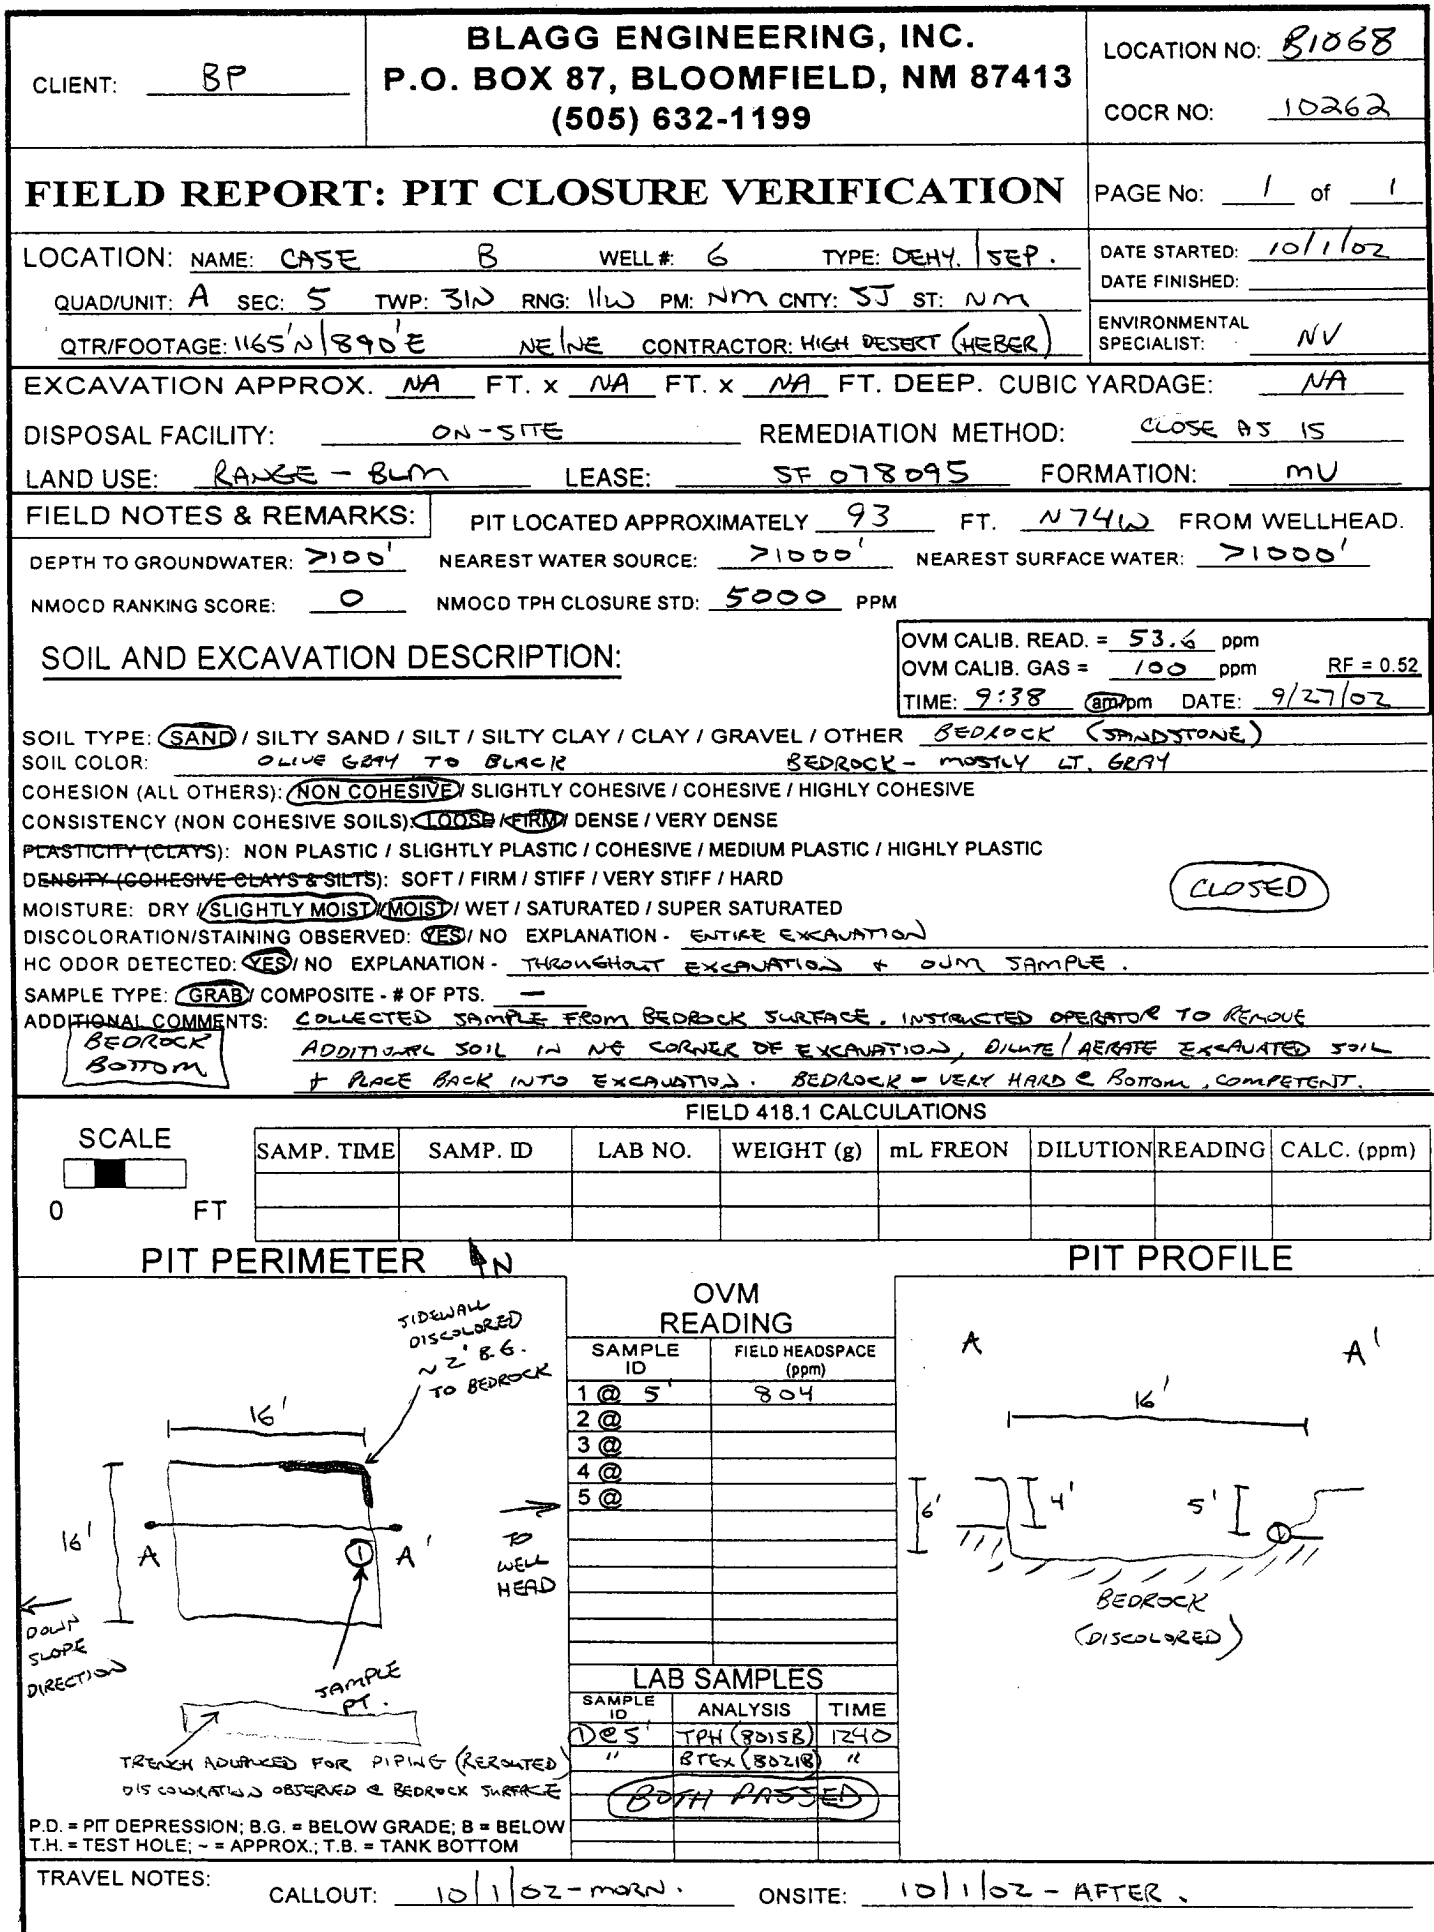 BLAGG ENGINEERING, INC.
P.O. BOX 87, BLOOMFIELD, NM 87413
(505) 632-1199
CLIENT: BP
LOCATION NO: B1068
COCR NO: 10262
FIELD REPORT: PIT CLOSURE VERIFICATION
PAGE No: 1 of 1
LOCATION: NAME: CASE B WELL #: 6 TYPE: DEHY. / SEP.
QUAD/UNIT: A SEC: 5 TWP: 31N RNG: 11W PM: NM CNTY: SJ ST: NM
QTR/FOOTAGE: 1165'N/890'E NE/NE CONTRACTOR: HIGH DESERT (HEBER)
DATE STARTED: 10/1/02
DATE FINISHED:
ENVIRONMENTAL SPECIALIST: NV
EXCAVATION APPROX. NA FT. x NA FT. x NA FT. DEEP. CUBIC YARDAGE: NA
DISPOSAL FACILITY: ON-SITE REMEDIATION METHOD: CLOSE AS IS
LAND USE: RANGE - BLM LEASE: SF 078095 FORMATION: MV
FIELD NOTES & REMARKS: PIT LOCATED APPROXIMATELY 93 FT. N74W FROM WELLHEAD.
DEPTH TO GROUNDWATER: >100' NEAREST WATER SOURCE: >1000' NEAREST SURFACE WATER: >1000'
NMOCD RANKING SCORE: 0 NMOCD TPH CLOSURE STD: 5000 PPM
SOIL AND EXCAVATION DESCRIPTION:
OVM CALIB. READ. = 53.6 ppm
OVM CALIB. GAS = 100 ppm RF = 0.52
TIME: 9:38 am/pm DATE: 9/27/02
SOIL TYPE: SAND / SILTY SAND / SILT / SILTY CLAY / CLAY / GRAVEL / OTHER BEDROCK (SANDSTONE)
SOIL COLOR: OLIVE GRAY TO BLACK BEDROCK - MOSTLY LT. GRAY
COHESION (ALL OTHERS): NON COHESIVE / SLIGHTLY COHESIVE / COHESIVE / HIGHLY COHESIVE
CONSISTENCY (NON COHESIVE SOILS): LOOSE / FIRM / DENSE / VERY DENSE
PLASTICITY (CLAYS): NON PLASTIC / SLIGHTLY PLASTIC / COHESIVE / MEDIUM PLASTIC / HIGHLY PLASTIC
DENSITY (COHESIVE CLAYS & SILTS): SOFT / FIRM / STIFF / VERY STIFF / HARD
CLOSED
MOISTURE: DRY / SLIGHTLY MOIST / MOIST / WET / SATURATED / SUPER SATURATED
DISCOLORATION/STAINING OBSERVED: YES / NO EXPLANATION - ENTIRE EXCAVATION
HC ODOR DETECTED: YES / NO EXPLANATION - THROUGHOUT EXCAVATION + OVM SAMPLE.
SAMPLE TYPE: GRAB / COMPOSITE - # OF PTS. —
ADDITIONAL COMMENTS: COLLECTED SAMPLE FROM BEDROCK SURFACE. INSTRUCTED OPERATOR TO REMOVE
ADDITIONAL SOIL IN NE CORNER OF EXCAVATION, DILUTE/AERATE EXCAVATED SOIL
+ PLACE BACK INTO EXCAVATION. BEDROCK - VERY HARD @ BOTTOM, COMPETENT.
BEDROCK
BOTTOM
FIELD 418.1 CALCULATIONS
SCALE
0 FT
SAMP. TIME SAMP. ID LAB NO. WEIGHT (g) mL FREON DILUTION READING CALC. (ppm)
PIT PERIMETER
N
SIDEWALL
DISCOLORED
~ 2' B.G.
TO BEDROCK
16'
16'
A
1
A'
TO
WELL
HEAD
DOWN
SLOPE
DIRECTION
SAMPLE
PT.
TRENCH ADVANCED FOR PIPING (REROUTED)
DISCOLORATION OBSERVED @ BEDROCK SURFACE
P.D. = PIT DEPRESSION; B.G. = BELOW GRADE; B = BELOW
T.H. = TEST HOLE; ~ = APPROX.; T.B. = TANK BOTTOM
OVM
READING
SAMPLE ID FIELD HEADSPACE (ppm)
1 @ 5' 804
2 @
3 @
4 @
5 @
LAB SAMPLES
SAMPLE ID ANALYSIS TIME
1 @ 5' TPH (8015B) 1240
" BTEX (8021B) "
BOTH PASSED
PIT PROFILE
A A'
16'
6' 4' 5' 1
BEDROCK
(DISCOLORED)
TRAVEL NOTES: CALLOUT: 10/1/02 - MORN. ONSITE: 10/1/02 - AFTER.